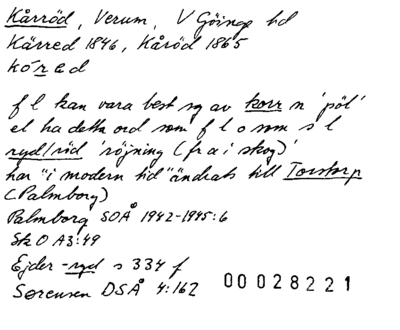 Kårröd, Verum, V Göinge hd
Kärred 1846, Kåröd 1865
kored
f l kan vara best sg av korr n 'pöl'
el ha detta ord som f l o som s l
ryd/röd 'röjning (fr a i skog)'
har "i modern tid" ändrats till Torstorp
(Palmborg)
Palmborg SOÅ 1942-1945:6
Sk O A3:49
Ejder -ryd s 334 f
Sørensen DSÅ 4:162
00028221